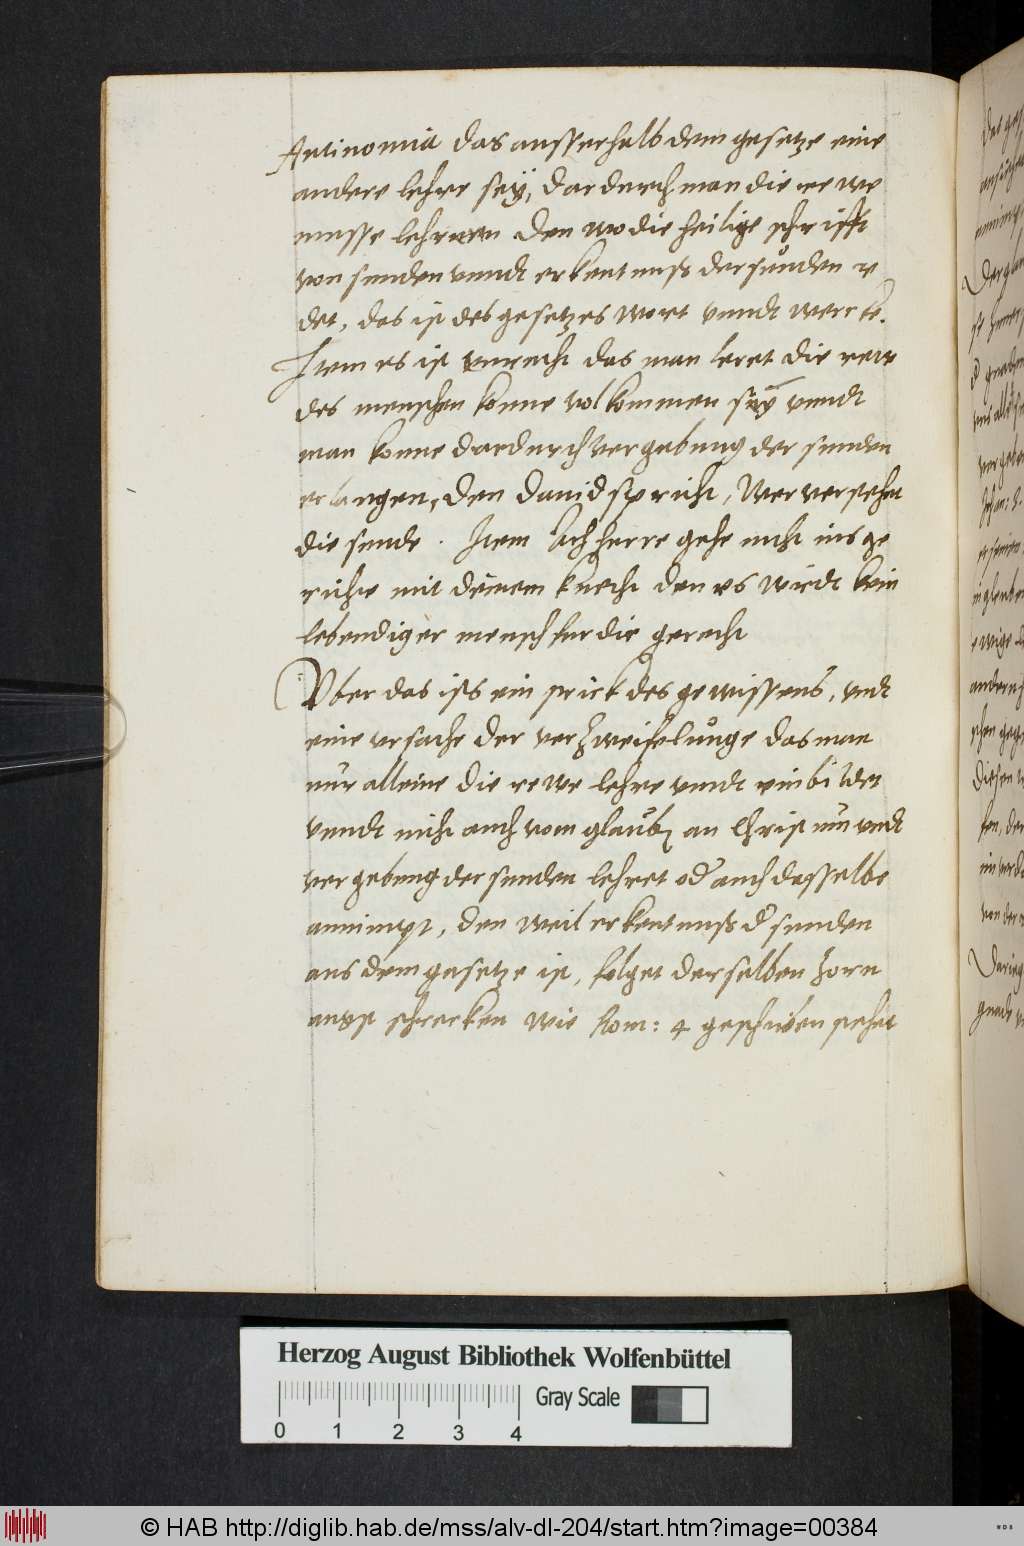 Antinomia das ausserhalb dem gesetze eine
andere lehre seÿ, dar durch man die rewe
musse lehrnen den wo die heilige schrifft
von sunden vnndt erkentnuß der sůnden re
det, das ist des gesetzes wort vnndt wercke.
Item es ist vnrecht das man leret die rew
des menschen konne volkommen seÿ vnndt
man konne dardurch vergebung der sunden
erlangen, den Dauid spricht, Wer verstehet
die sunde . Item Ach herre gehe nicht ins ge
richte mit deinem knecht den es wirdt kein
lebendiger mensch fur dir gerecht
Vber das ists ein strick des gewissens, vndt
eine vrsache der verzweifelůnge das man
nůr alleine die rewe lehre vnndt einbildet
vnndt nicht auch vom glaub an Christum vndt
vergebung der sunden lehret od auch dasselbe
annimpt, den weil erkentnuß d sunden
aus dem gesetze ist, folget derselben zorn
angst schrecken wie Rom: 4 geschrieben stehet
Herzog August Bibliothek Wolfenbüttel
Gray Scale
0 1 2 3 4
© HAB http://diglib.hab.de/mss/alv-dl-204/start.htm?image=00384